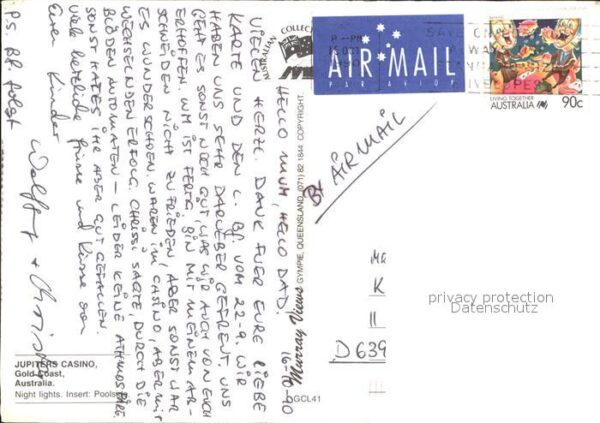 16-10-90
HELLO MUM, HELLO DAD.
VIELEN HERZL. DANK FUER EURE LIEBE
KARTE UND DEN L. BF. VOM 22-9. WIR
HABEN UNS SEHR DARUEBER GEFREUT. UNS
GEHT ES SONST NOCH GUT, WAS WIR AUCH VON EUCH
ERHOFFEN. UNI IST FERTIG, BIN MIT MEINEM AB-
SCHNEIDEN NICHT ZUFRIEDEN, ABER SONST WAR
ES WUNDERSCHOEN. WAREN IM CASINO, ABER MIT
WECHSELNDEN ERFOLG. CHRISSI SAGTE, DURCH DIE
BLÖDEN AUTOMATEN - LEIDER KEINE ATHMOSPÄRE
SONST HATES IHR ABER GUT GEFALLEN.
Viele herzliche Grüsse und Küsse von
Euren Kinder
Wolfgang + Christa
PS. BF. folgt
JUPITERS CASINO,
Gold Coast,
Australia.
Night lights. Insert: Pools
AUSTRALIAN COLLEC
Murray Views
GYMPIE, QUEENSLAND. (071) 82 1844 COPYRIGHT.
GCL41
AIR MAIL
PAR AVION
LIVING TOGETHER
AUSTRALIA
90c
BY AIR MAIL
K
D 639
privacy protection
Datenschutz